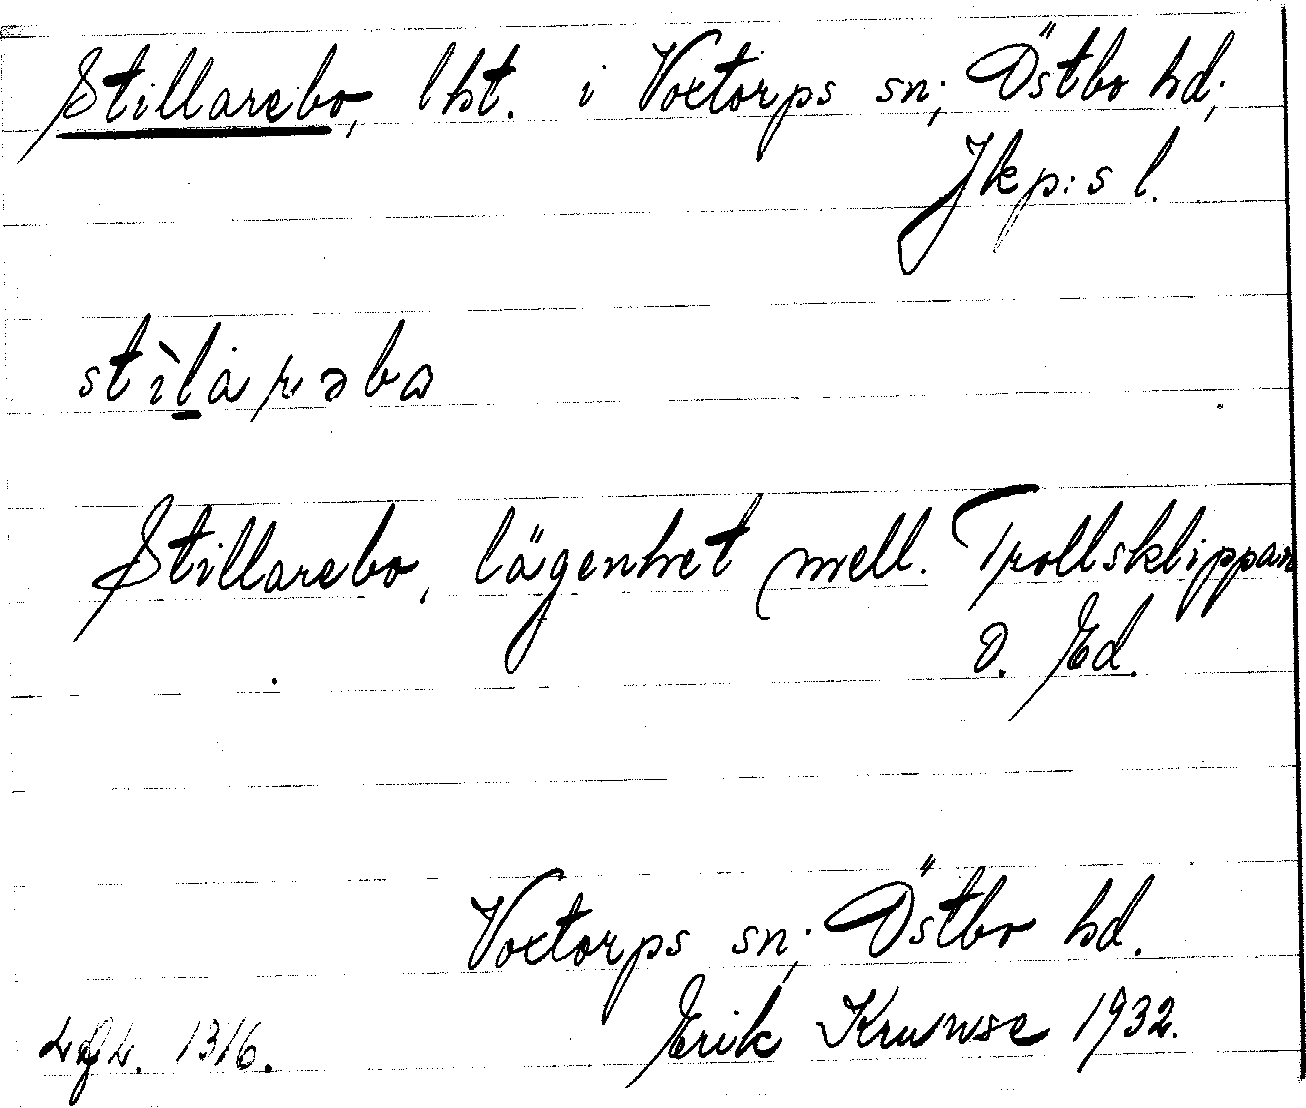 Stillarebo, lht. i Voxtorps sn; Östbo hd;
Jkp:s l.
stìlarəba
Stillarebo, lägenhet mell. Trollsklippan
o. Ed.
Voxtorps sn; Östbo hd.
Erik Krunse 1932.
1316.